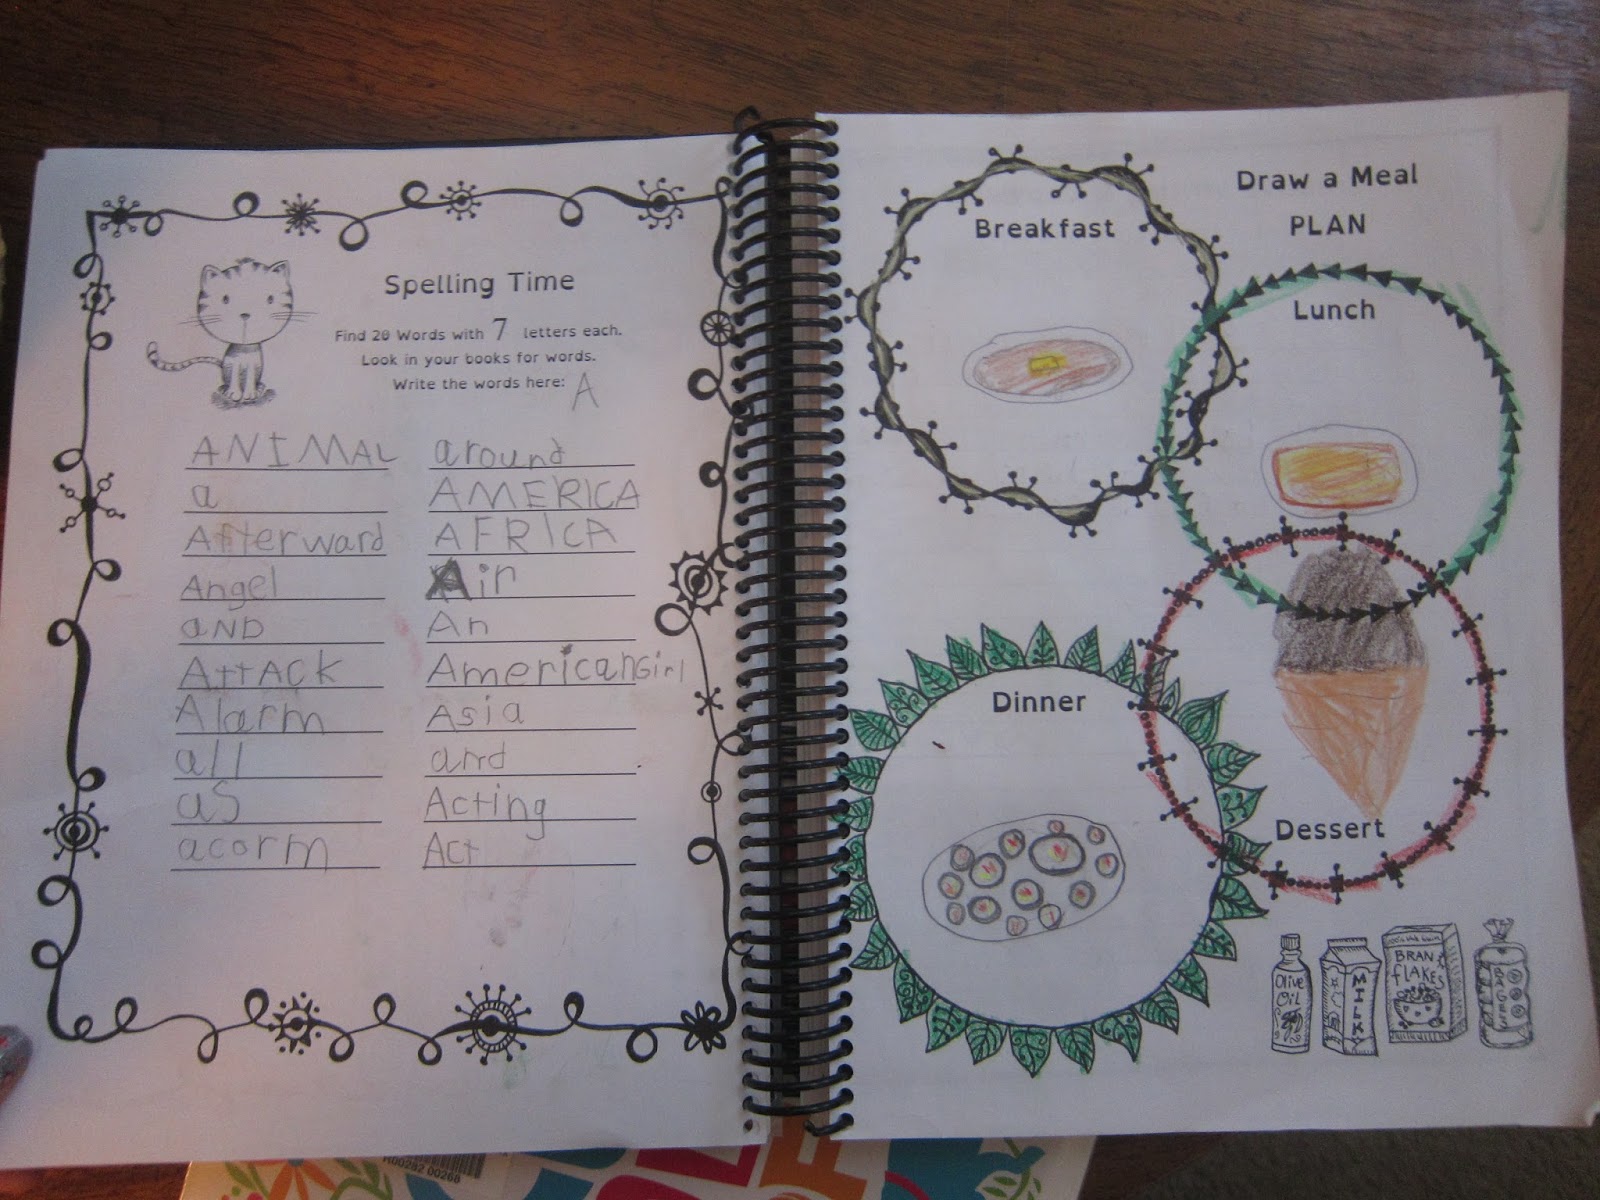 Spelling Time
Find 20 Words with 7 letters each.
Look in your books for words.
Write the words here: A
ANIMAL
a
Afterward
Angel
aND
AttAcK
Alarm
all
aS
acorm
around
AMERICA
AFRICA
Air
An
AmericanGirl
Asia
and
Acting
Act
Draw a Meal
PLAN
Breakfast
Lunch
Dinner
Dessert
Olive
OiL
MILK
BRAN
fLAKES
BAGELS
R00282 00268